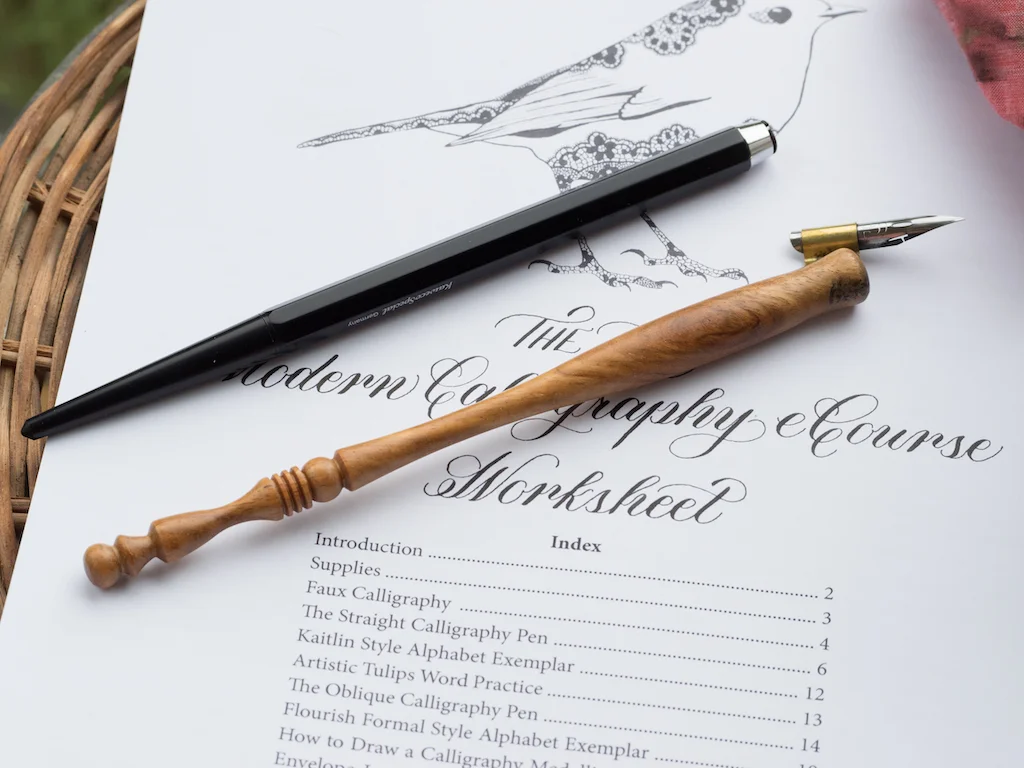 KawecoSpecial Germany
THE
Modern Calligraphy eCourse
Worksheet
Index
Introduction ........ 2
Supplies ........ 3
Faux Calligraphy ........ 4
The Straight Calligraphy Pen ........ 6
Kaitlin Style Alphabet Exemplar ........ 12
Artistic Tulips Word Practice ........ 13
The Oblique Calligraphy Pen ........ 14
Flourish Formal Style Alphabet Exemplar
How to Draw a Calligraphy
Envelope